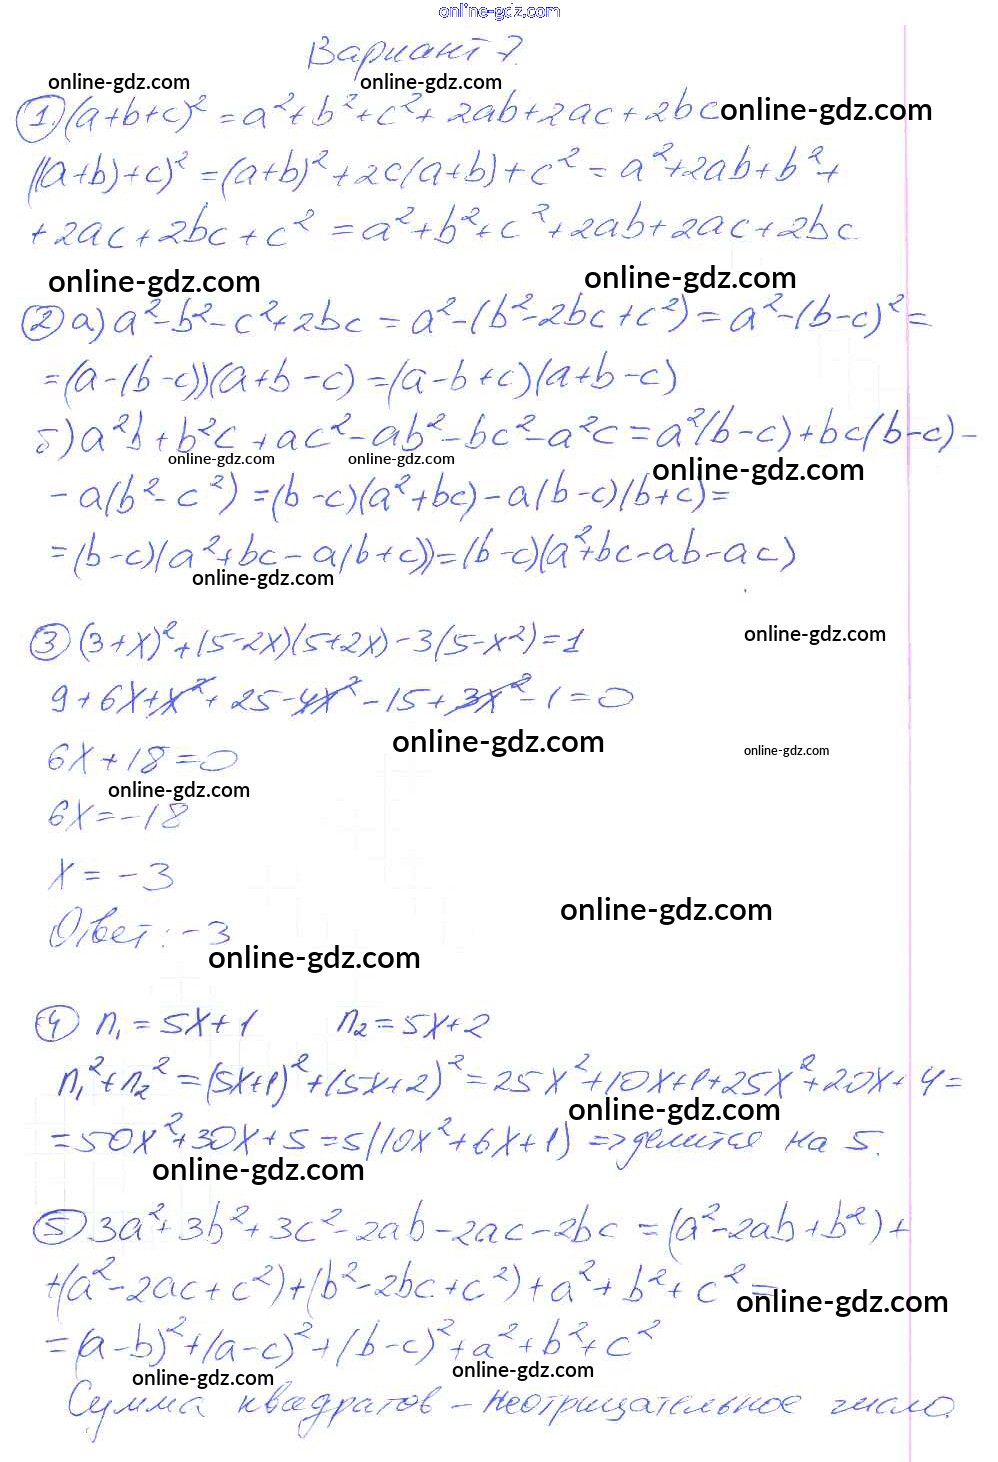 online-gdz.com
Вариант 7.
online-gdz.com online-gdz.com
① (a+b+c)² = a²+b²+c²+2ab+2ac+2bc online-gdz.com
((a+b)+c)² = (a+b)²+2c(a+b)+c² = a²+2ab+b²+
+2ac+2bc+c² = a²+b²+c²+2ab+2ac+2bc.
online-gdz.com online-gdz.com
② а) a²-b²-c²+2bc = a²-(b²-2bc+c²) = a²-(b-c)² =
=(a-(b-c))(a+b-c) =(a-b+c)(a+b-c)
б) a²b+b²c+ac²-ab²-bc²-a²c = a²(b-c)+bc(b-c)-
online-gdz.com online-gdz.com online-gdz.com
-a(b²-c²) =(b-c)(a²+bc)-a(b-c)(b+c)=
=(b-c)(a²+bc-a(b+c))=(b-c)(a²+bc-ab-ac)
online-gdz.com
③ (3+x)²+(5-2x)(5+2x)-3(5-x²)=1
online-gdz.com
9+6x+x²+25-4x²-15+3x²-1=0
online-gdz.com
6x+18=0
online-gdz.com
online-gdz.com
6x=-18
x=-3
online-gdz.com
Ответ: -3
online-gdz.com
④ n₁=5x+1 n₂=5x+2
n₁²+n₂² =(5x+1)²+(5x+2)²=25x²+10x+1+25x²+20x+4=
online-gdz.com
=50x²+30x+5=5(10x²+6x+1) => делится на 5.
online-gdz.com
⑤ 3a²+3b²+3c²-2ab-2ac-2bc =(a²-2ab+b²)+
+(a²-2ac+c²)+(b²-2bc+c²)+a²+b²+c²=
online-gdz.com
=(a-b)²+(a-c)²+(b-c)²+a²+b²+c²
online-gdz.com online-gdz.com
Сумма квадратов – неотрицательное число.